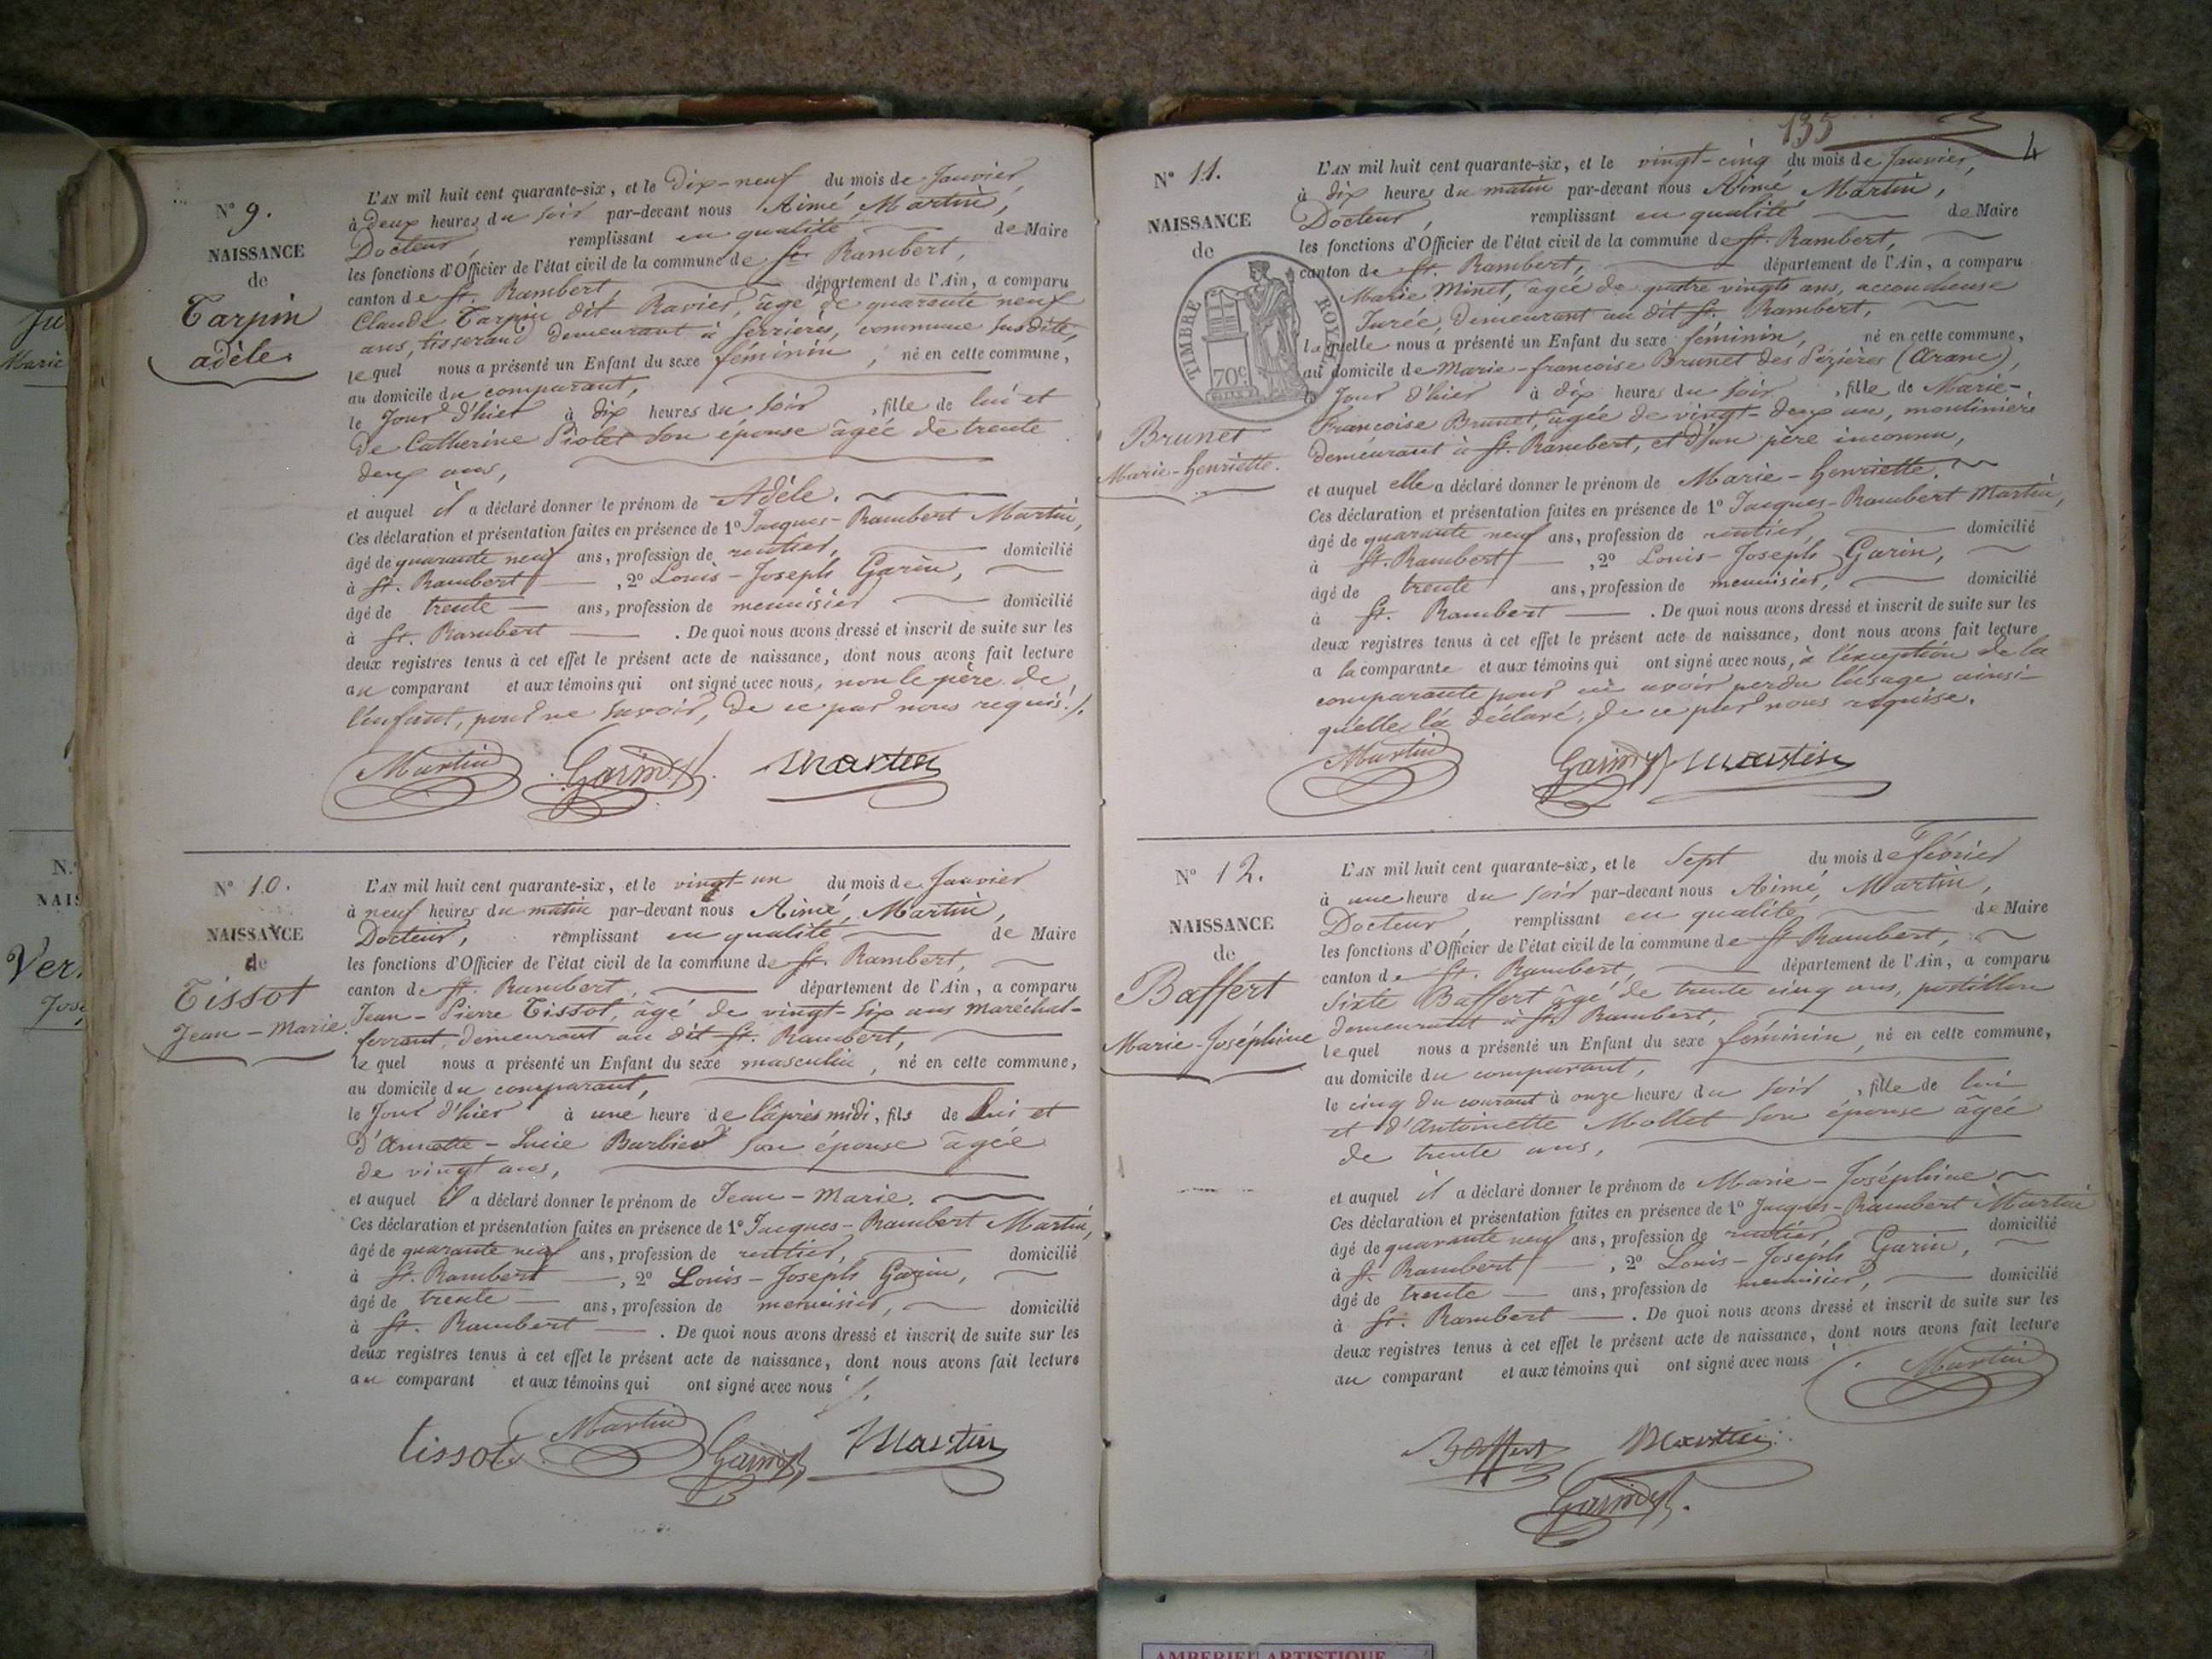 Ju
Marie
N.
NAIS
Ver
José
N° 9.
NAISSANCE
de
Tarpin
adèle
L'AN mil huit cent quarante-six, et le Dix-neuf du mois de Janvier,
à Deux heures du soir par-devant nous Aimé Martin,
Docteur, remplissant en qualité de Maire
les fonctions d'Officier de l'état civil de la commune de St. Rambert,
canton de St. Rambert, département de l'Ain, a comparu
Claude Tarpin dit Ravier, âgé de quarante neuf
ans, tisserand demeurant à Serrières, commune susdite,
lequel nous a présenté un Enfant du sexe féminin, né en cette commune,
au domicile du comparant,
le Jour d'hier à dix heures du soir, fille de lui et
De Catherine Piolet son épouse âgée de trente
deux ans,
et auquel il a déclaré donner le prénom de Adèle.
Ces déclaration et présentation faites en présence de 1° Jacques-Rambert Martin,
âgé de quarante neuf ans, profession de rentier, domicilié
à St. Rambert, 2° Louis-Joseph Garin,
âgé de trente ans, profession de menuisier domicilié
à St. Rambert. De quoi nous avons dressé et inscrit de suite sur les
deux registres tenus à cet effet le présent acte de naissance, dont nous avons fait lecture
au comparant et aux témoins qui ont signé avec nous, non le père de
l'enfant, pour ne savoir, de ce par nous requis./.
Martin Garin Martin
N° 10.
NAISSANCE
de
Tissot
Jean-Marie.
L'AN mil huit cent quarante-six, et le vingt-un du mois de Janvier
à neuf heures du matin par-devant nous Aimé Martin,
Docteur, remplissant en qualité de Maire
les fonctions d'Officier de l'état civil de la commune de St. Rambert,
canton de St. Rambert, département de l'Ain, a comparu
Jean-Pierre Tissot, âgé de vingt-six ans maréchal-
ferrant, demeurant au dit St. Rambert,
lequel nous a présenté un Enfant du sexe masculin, né en cette commune,
au domicile du comparant,
le Jour d'hier à une heure de l'après midi, fils de lui et
d'Annette-Lucie Barbier son épouse âgée
de vingt ans,
et auquel il a déclaré donner le prénom de Jean-Marie.
Ces déclaration et présentation faites en présence de 1° Jacques-Rambert Martin,
âgé de quarante neuf ans, profession de rentier, domicilié
à St. Rambert, 2° Louis-Joseph Garin,
âgé de trente ans, profession de menuisier, domicilié
à St. Rambert. De quoi nous avons dressé et inscrit de suite sur les
deux registres tenus à cet effet le présent acte de naissance, dont nous avons fait lecture
au comparant et aux témoins qui ont signé avec nous
tissot Martin Garin Martin
135
4
N° 11.
NAISSANCE
de
TIMBRE ROYAL
70c
Brunet
Marie-Henriette.
L'AN mil huit cent quarante-six, et le vingt-cinq du mois de Janvier,
à dix heures du matin par-devant nous Aimé Martin,
Docteur, remplissant en qualité de Maire
les fonctions d'Officier de l'état civil de la commune de St. Rambert,
canton de St. Rambert, département de l'Ain, a comparu
Marie Minet, âgée de quatre vingts ans, accoucheuse
Jurée, demeurant au dit St. Rambert,
laquelle nous a présenté un Enfant du sexe féminin, né en cette commune,
au domicile de Marie-françoise Brunet des Pézières (Aranc),
le Jour d'hier à dix heures du soir, fille de Marie-
Françoise Brunet, âgée de vingt-deux an, moulinière
demeurant à St. Rambert, et d'un père inconnu,
et auquel elle a déclaré donner le prénom de Marie-Henriette.
Ces déclaration et présentation faites en présence de 1° Jacques-Rambert Martin,
âgé de quarante neuf ans, profession de rentier, domicilié
à St. Rambert, 2° Louis-Joseph Garin,
âgé de trente ans, profession de menuisier, domicilié
à St. Rambert. De quoi nous avons dressé et inscrit de suite sur les
deux registres tenus à cet effet le présent acte de naissance, dont nous avons fait lecture
a la comparante et aux témoins qui ont signé avec nous, à l'exception de la
comparante pour en avoir perdu l'usage ainsi
qu'elle l'a déclaré, de ce par nous requise.
Martin Garin Martin
N° 12.
NAISSANCE
de
Baffert
Marie-Joséphine
L'AN mil huit cent quarante-six, et le Sept du mois de février
à une heure du soir par-devant nous Aimé Martin,
Docteur, remplissant en qualité de Maire
les fonctions d'Officier de l'état civil de la commune de St Rambert,
canton de St. Rambert, département de l'Ain, a comparu
Sixte Baffert âgé de trente cinq ans, postillon
demeurant à St. Rambert,
lequel nous a présenté un Enfant du sexe féminin, né en cette commune,
au domicile du comparant,
le cinq du courant à onze heures du soir, fille de lui
et d'Antoinette Mollet son épouse âgée
de trente ans,
et auquel il a déclaré donner le prénom de Marie-Joséphine
Ces déclaration et présentation faites en présence de 1° Jacques-Rambert Martin
âgé de quarante neuf ans, profession de rentier, domicilié
à St. Rambert, 2° Louis-Joseph Garin,
âgé de trente ans, profession de menuisier, domicilié
à St. Rambert. De quoi nous avons dressé et inscrit de suite sur les
deux registres tenus à cet effet le présent acte de naissance, dont nous avons fait lecture
au comparant et aux témoins qui ont signé avec nous
Martin
Baffert Martin
Garin
AMBERIEU ARTISTIQUE